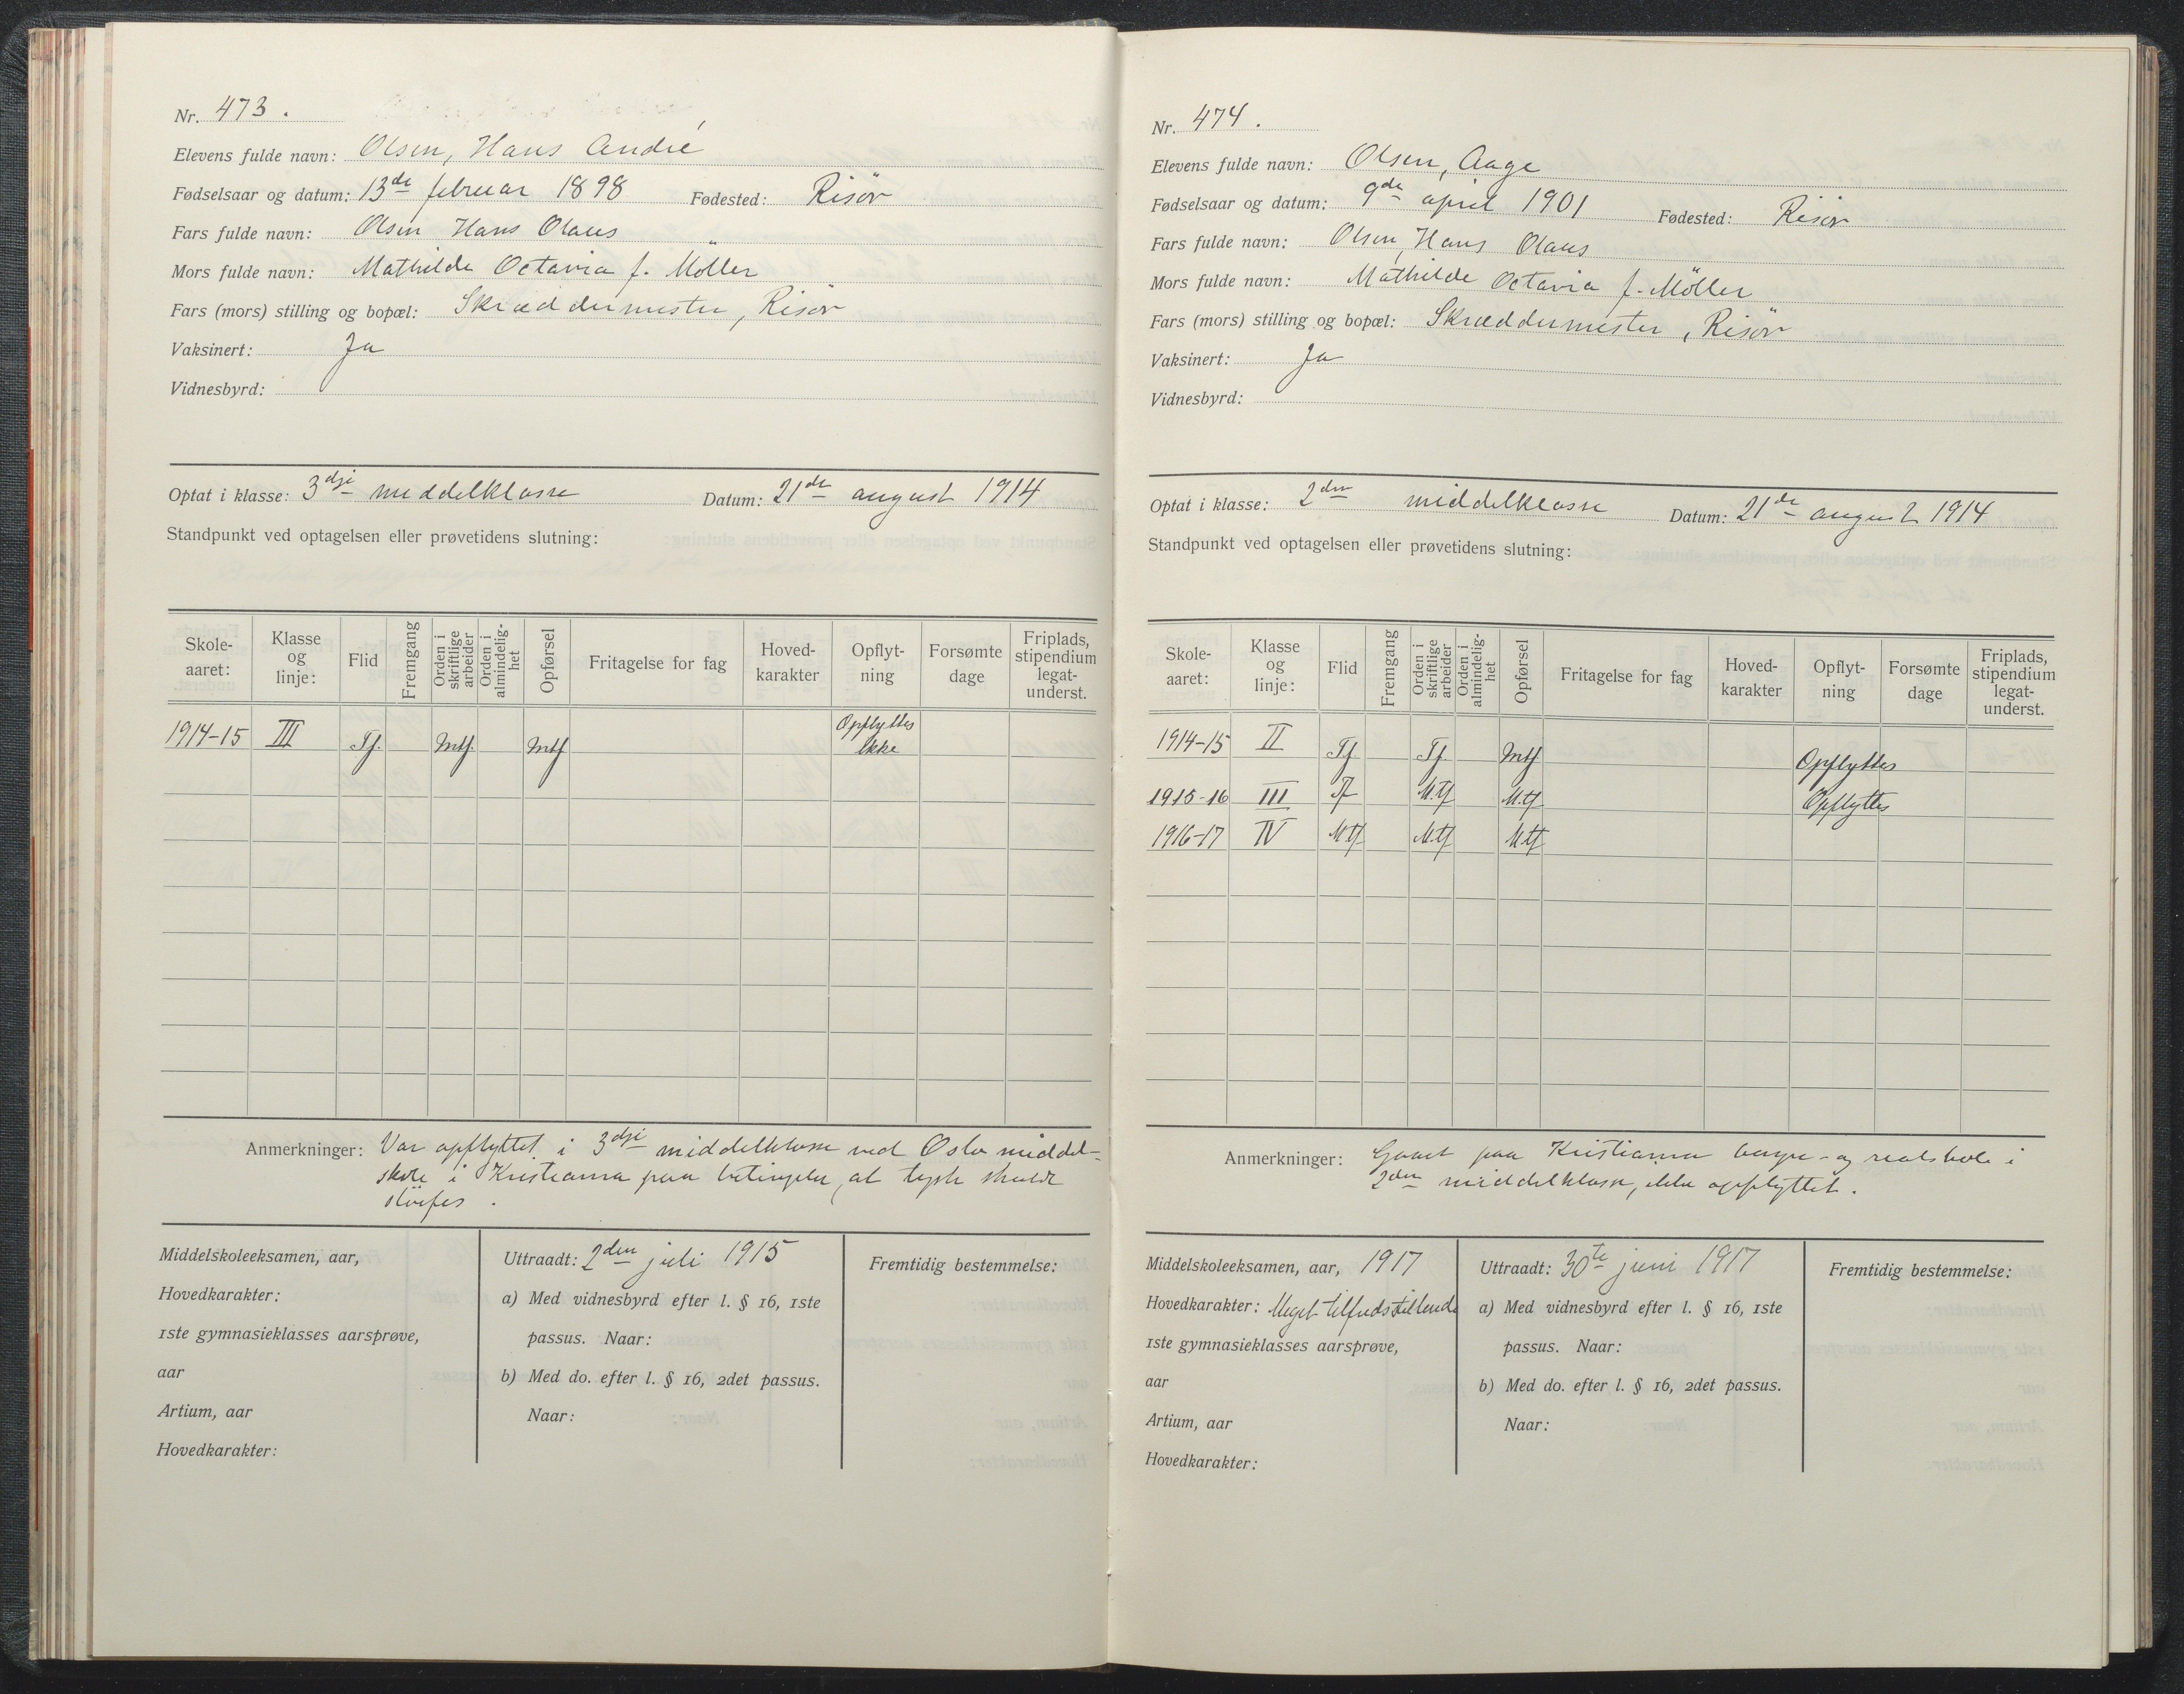 Nr. 473.
Elevens fulde navn: Olsen, Hans André
Fødselsaar og datum: 13de februar 1898 Fødested: Risör
Fars fulde navn: Olsen Hans Olaus
Mors fulde navn: Mathilde Octavia f. Möller
Fars (mors) stilling og bopæl: Skræddermester, Risör
Vaksinert: Ja
Vidnesbyrd:
Optat i klasse: 3dje middelklasse Datum: 21de august 1914
Standpunkt ved optagelsen eller prøvetidens slutning:
Skole-aaret: Klasse og linje: Flid Fremgang Orden i skriftlige arbeider Orden i almindelig-het Opførsel Fritagelse for fag Hoved-karakter Opflyt-ning Forsømte dage Friplads, stipendium legat-underst.
1914-15 III Tf. Mtf. Mtf Opflyttes ikke
Anmerkninger: Var opflyttet i 3dje middelklasse ved Oslo middel-
skole i Kristiania paa betingelse, at tysk skulde
sløifes.
Middelskoleeksamen, aar,
Hovedkarakter:
1ste gymnasieklasses aarsprøve,
aar
Artium, aar
Hovedkarakter:
Uttraadt: 2den juli 1915
a) Med vidnesbyrd efter l. § 16, 1ste
passus. Naar:
b) Med do. efter l. § 16, 2det passus.
Naar:
Fremtidig bestemmelse:
Nr. 474.
Elevens fulde navn: Olsen, Aage
Fødselsaar og datum: 9de april 1901 Fødested: Risör
Fars fulde navn: Olsen, Hans Olaus
Mors fulde navn: Mathilde Octavia f. Möller
Fars (mors) stilling og bopæl: Skræddermester, Risör
Vaksinert: Ja
Vidnesbyrd:
Optat i klasse: 2den middelklasse Datum: 21de august 1914
Standpunkt ved optagelsen eller prøvetidens slutning:
Skole-aaret: Klasse og linje: Flid Fremgang Orden i skriftlige arbeider Orden i almindelig-het Opførsel Fritagelse for fag Hoved-karakter Opflyt-ning Forsømte dage Friplads, stipendium legat-underst.
1914-15 II Tf. Tf. Mtf Opflyttes
1915-16 III Tf M.tf M.tf Opflyttes
1916-17 IV M.tf M.tf M.tf
Anmerkninger: Gaaet paa Kristiania borger- og realskole i
2den middelklasse, ikke opflyttet.
Middelskoleeksamen, aar, 1917
Hovedkarakter: Meget tilfredsstillende
1ste gymnasieklasses aarsprøve,
aar
Artium, aar
Hovedkarakter:
Uttraadt: 30te juni 1917
a) Med vidnesbyrd efter l. § 16, 1ste
passus. Naar:
b) Med do. efter l. § 16, 2det passus.
Naar:
Fremtidig bestemmelse: